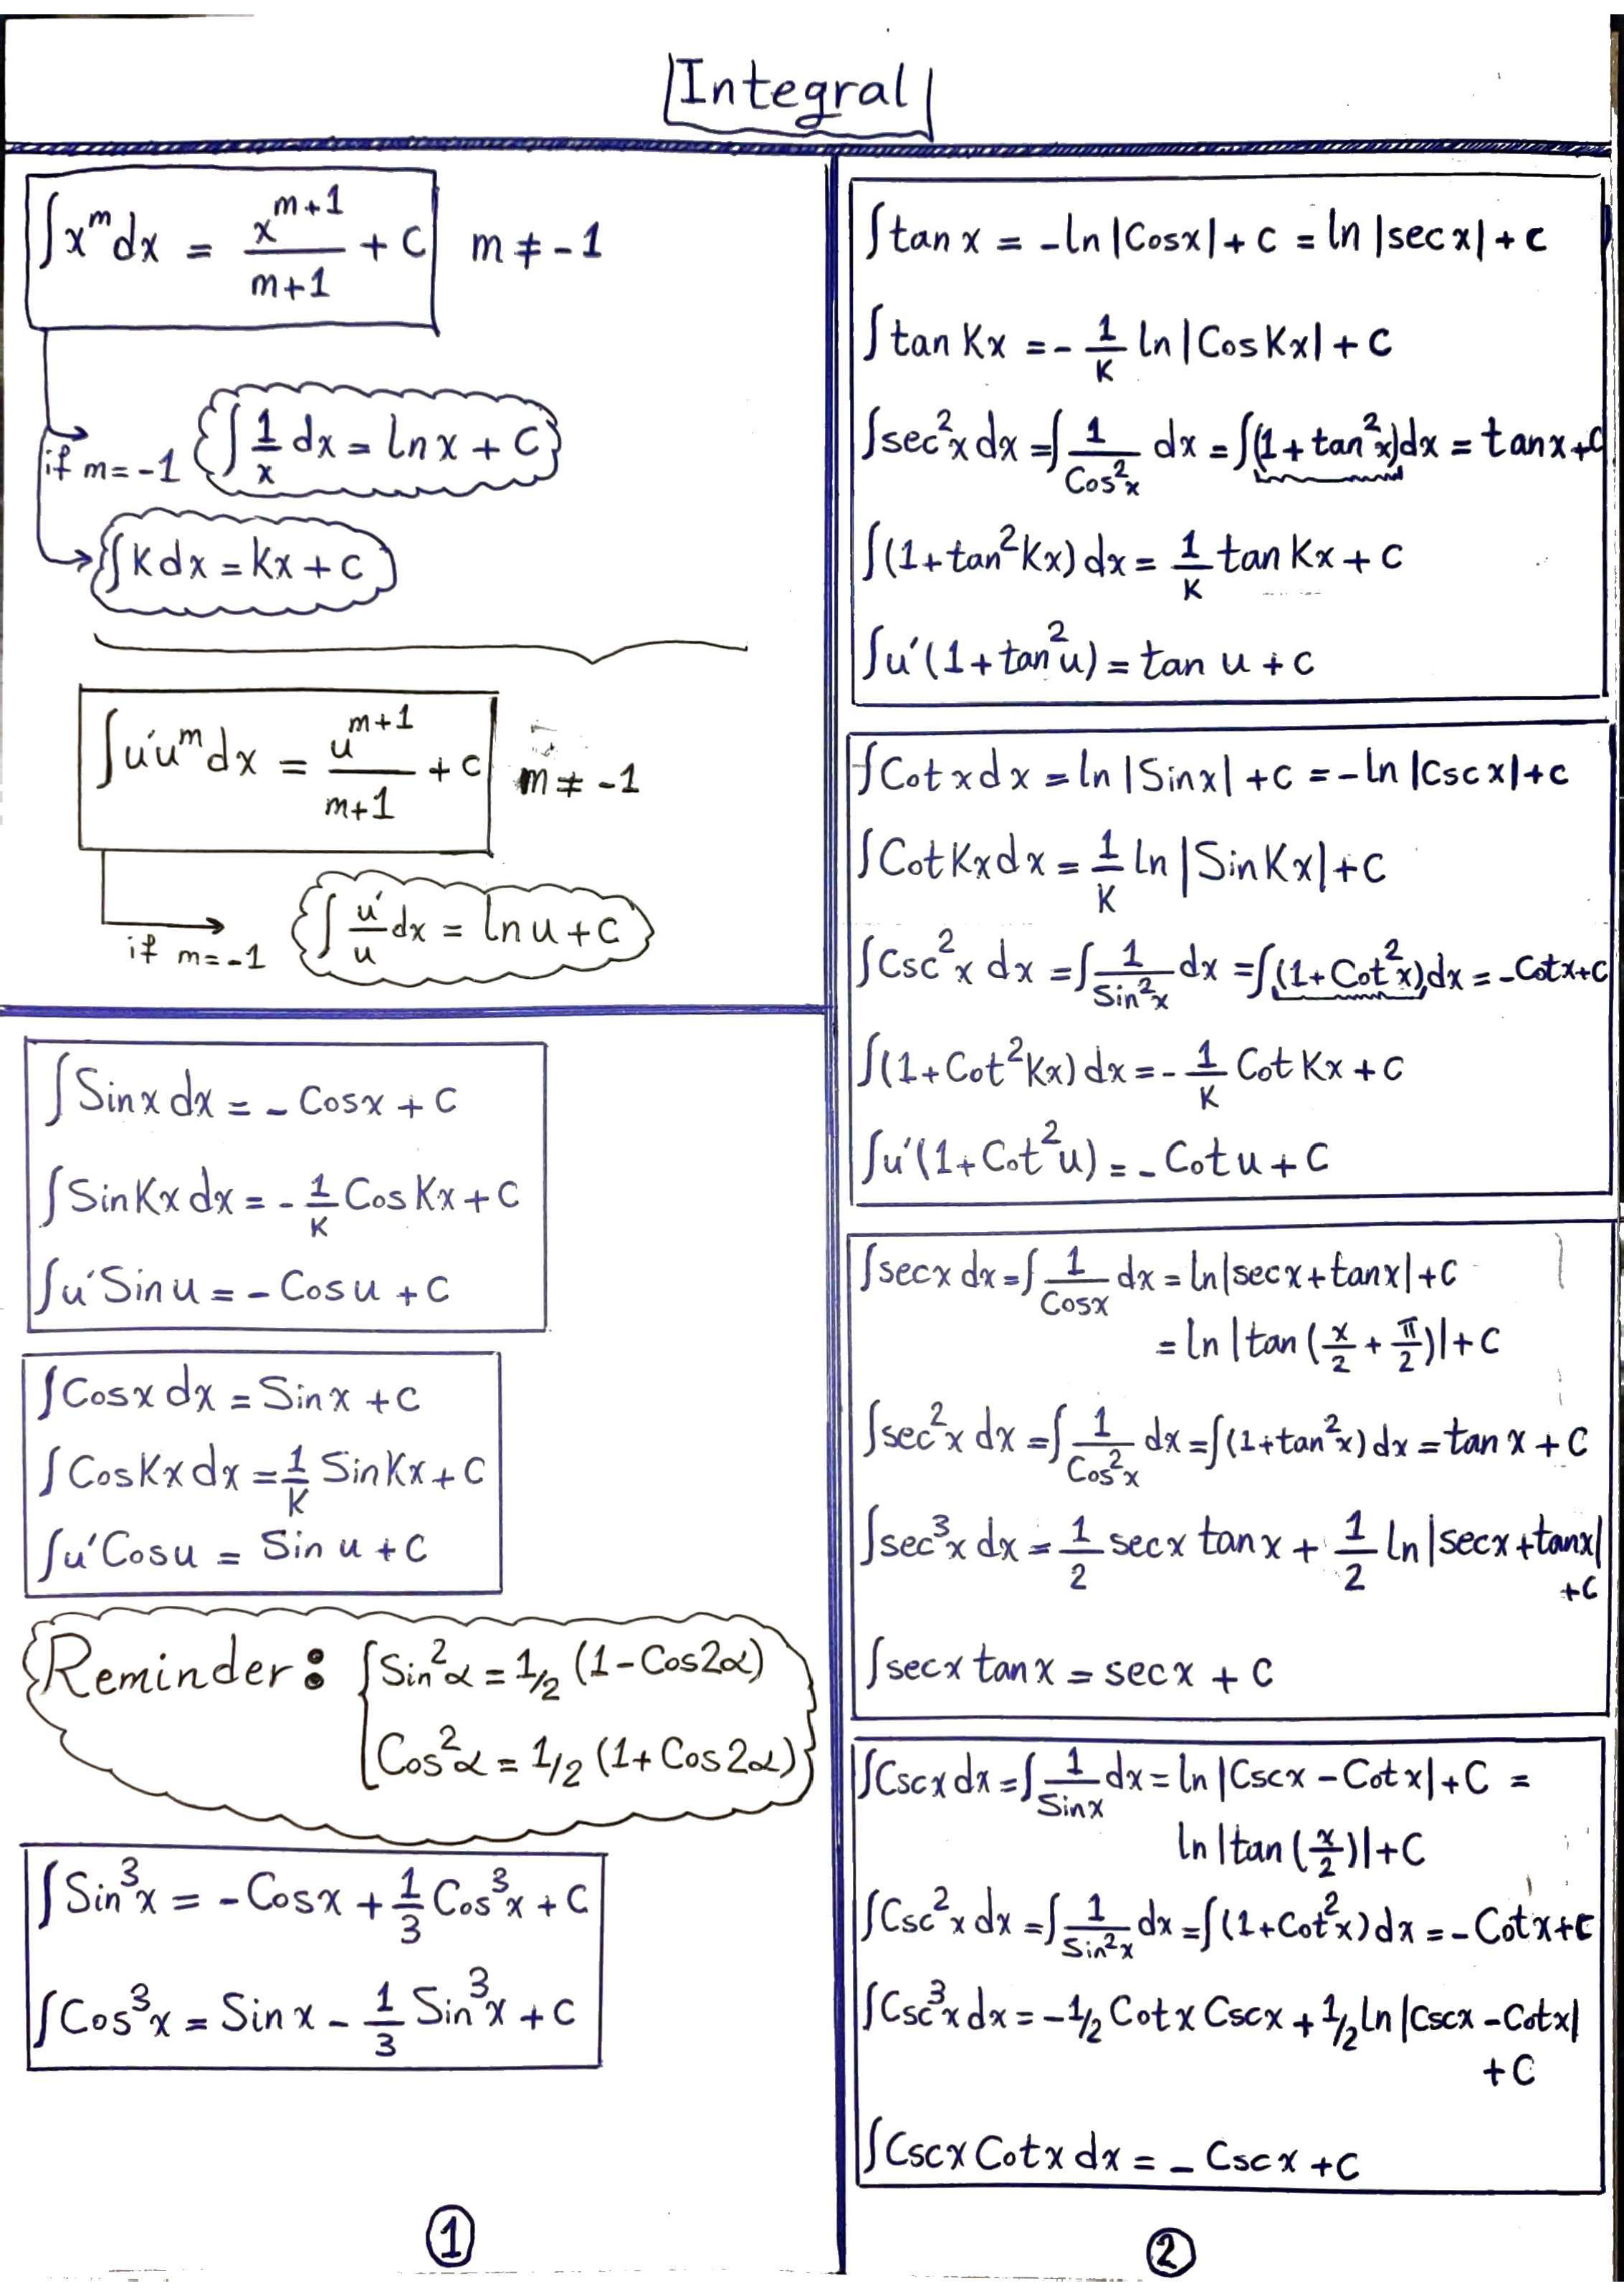 Integral
∫x^m dx = x^(m+1)/(m+1) + C   m ≠ -1
if m = -1   ∫1/x dx = ln x + C
∫K dx = Kx + C
∫u'u^m dx = u^(m+1)/(m+1) + C   m ≠ -1
if m = -1   ∫u'/u dx = ln u + C
∫Sinx dx = - Cosx + C
∫SinKx dx = - 1/K CosKx + C
∫u'Sinu = - Cosu + C
∫Cosx dx = Sinx + C
∫CosKx dx = 1/K SinKx + C
∫u'Cosu = Sin u + C
Reminder: Sin²α = 1/2 (1 - Cos2α)
Cos²α = 1/2 (1 + Cos2α)
∫Sin³x = - Cosx + 1/3 Cos³x + C
∫Cos³x = Sinx - 1/3 Sin³x + C
①
∫tan x = -ln|Cosx| + C = ln|secx| + C
∫tan Kx = - 1/K ln|CosKx| + C
∫sec²x dx = ∫1/Cos²x dx = ∫(1+tan²x)dx = tanx + C
∫(1+tan²Kx) dx = 1/K tanKx + C
∫u'(1+tan²u) = tan u + C
∫Cotx dx = ln|Sinx| + C = -ln|Cscx| + C
∫CotKx dx = 1/K ln|SinKx| + C
∫Csc²x dx = ∫1/Sin²x dx = ∫(1+Cot²x)dx = -Cotx + C
∫(1+Cot²Kx) dx = - 1/K CotKx + C
∫u'(1+Cot²u) = - Cotu + C
∫secx dx = ∫1/Cosx dx = ln|secx+tanx| + C
= ln|tan(x/2 + π/2)| + C
∫sec²x dx = ∫1/Cos²x dx = ∫(1+tan²x) dx = tanx + C
∫sec³x dx = 1/2 secx tanx + 1/2 ln|secx+tanx|
+C
∫secx tanx = secx + C
∫Cscx dx = ∫1/Sinx dx = ln|Cscx - Cotx| + C =
ln|tan(x/2)| + C
∫Csc²x dx = ∫1/Sin²x dx = ∫(1+Cot²x) dx = - Cotx + C
∫Csc³x dx = -1/2 Cotx Cscx + 1/2 ln|Cscx - Cotx|
+C
∫Cscx Cotx dx = - Cscx + C
②